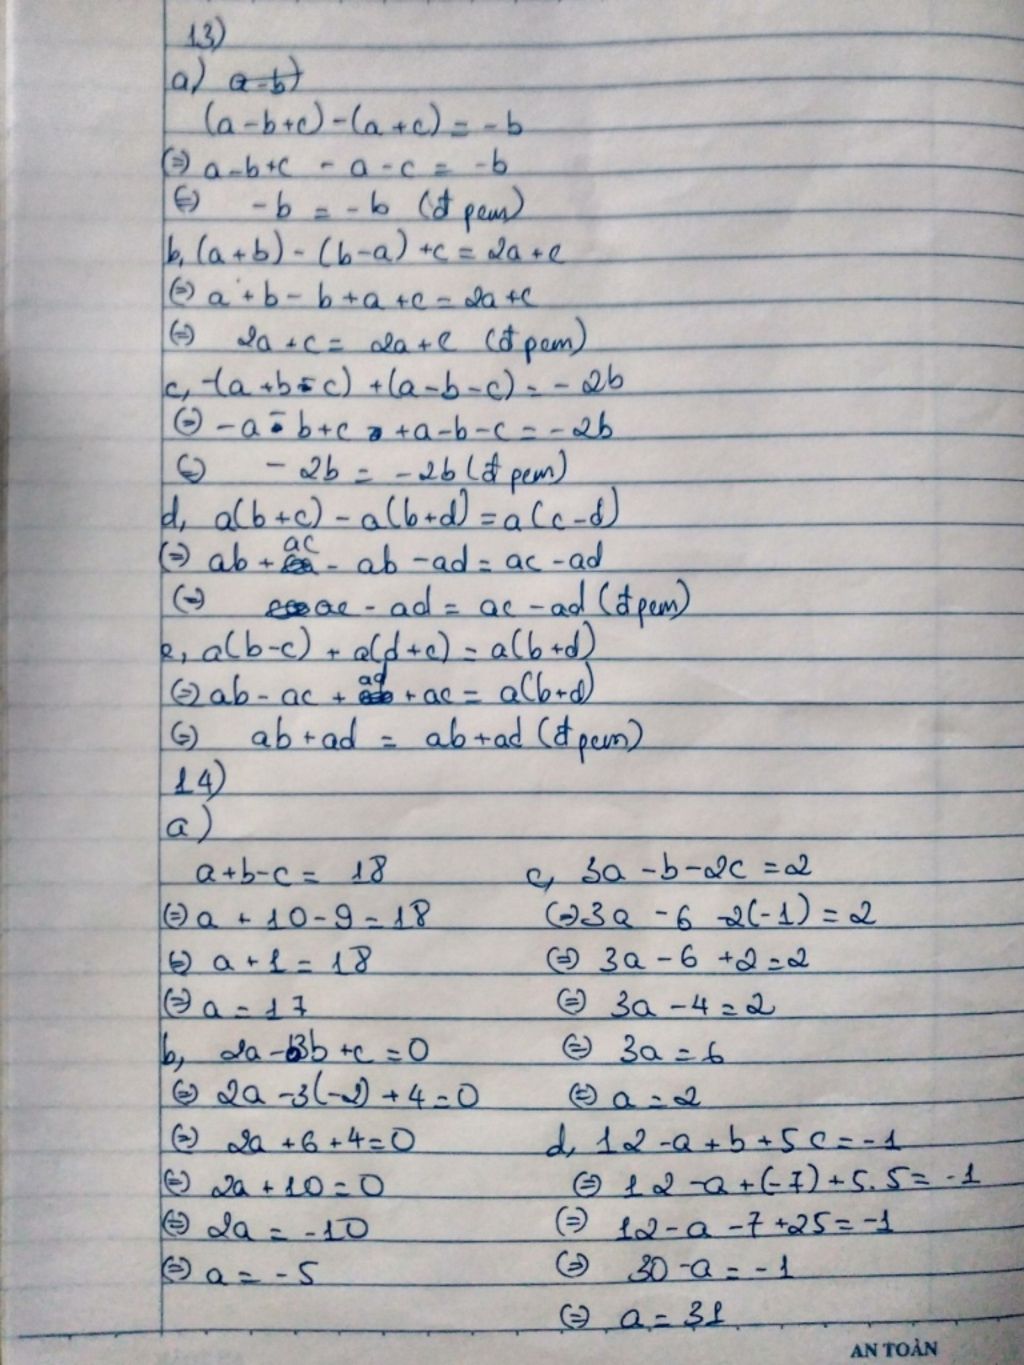 13)
a)
(a-b+c)-(a+c) = -b
(=) a-b+c - a-c = -b
(=) -b = -b (đpcm)
b, (a+b)-(b-a)+c = 2a+c
(=) a+b-b+a+c = 2a+c
(=) 2a+c = 2a+c (đpcm)
c, -(a+b-c)+(a-b-c) = -2b
(=) -a-b+c+a-b-c = -2b
(=) -2b = -2b (đpcm)
d, a(b+c)-a(b+d) = a(c-d)
(=) ab+ac-ab-ad = ac-ad
(=) ac-ad = ac-ad (đpcm)
e, a(b-c)+a(d+c) = a(b+d)
(=) ab-ac+ad+ac = a(b+d)
(=) ab+ad = ab+ad (đpcm)
14)
a)
a+b-c = 18
(=) a+10-9 = 18
(=) a+1 = 18
(=) a = 17
b, 2a-3b+c = 0
(=) 2a-3(-2)+4 = 0
(=) 2a+6+4 = 0
(=) 2a+10 = 0
(=) 2a = -10
(=) a = -5
c, 3a-b-2c = 2
(=) 3a-6-2(-1) = 2
(=) 3a-6+2 = 2
(=) 3a-4 = 2
(=) 3a = 6
(=) a = 2
d, 12-a+b+5c = -1
(=) 12-a+(-7)+5.5 = -1
(=) 12-a-7+25 = -1
(=) 30-a = -1
(=) a = 31
AN TOÀN